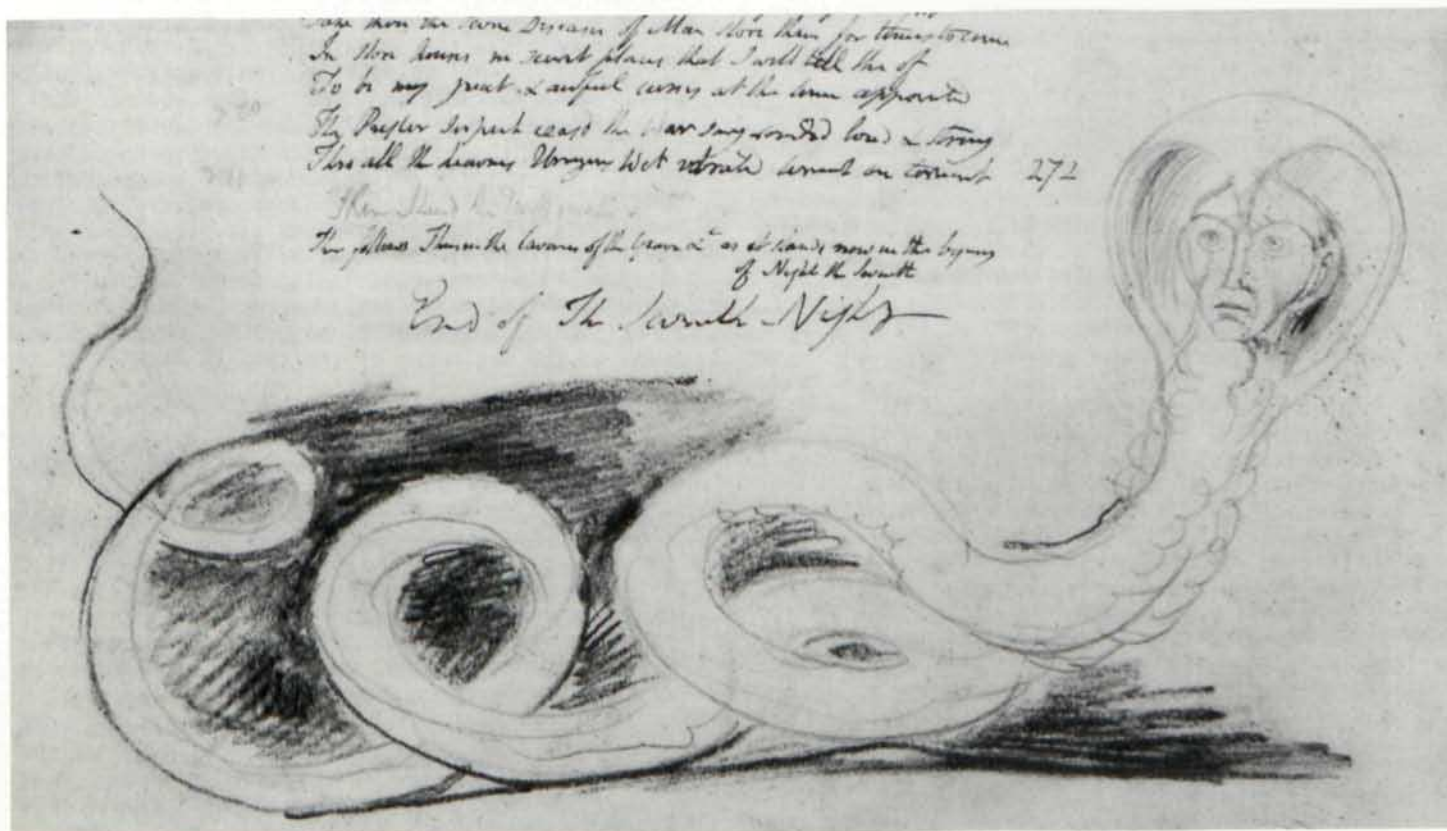 Take thou the seven Diseases of Man store them for times to come
In store houses in secret places that I will tell the of
To be my great & awful curses at the time appointed
The Prester Serpent ceasd the War song sounded loud & strong
Thro all the heavens Urizens Web vibrated torment on torment 272
Then I heard the
Then follows Thus in the Caverns of the Grave &c as it stands now in the beginning
of Night the Seventh
End of The Seventh Night